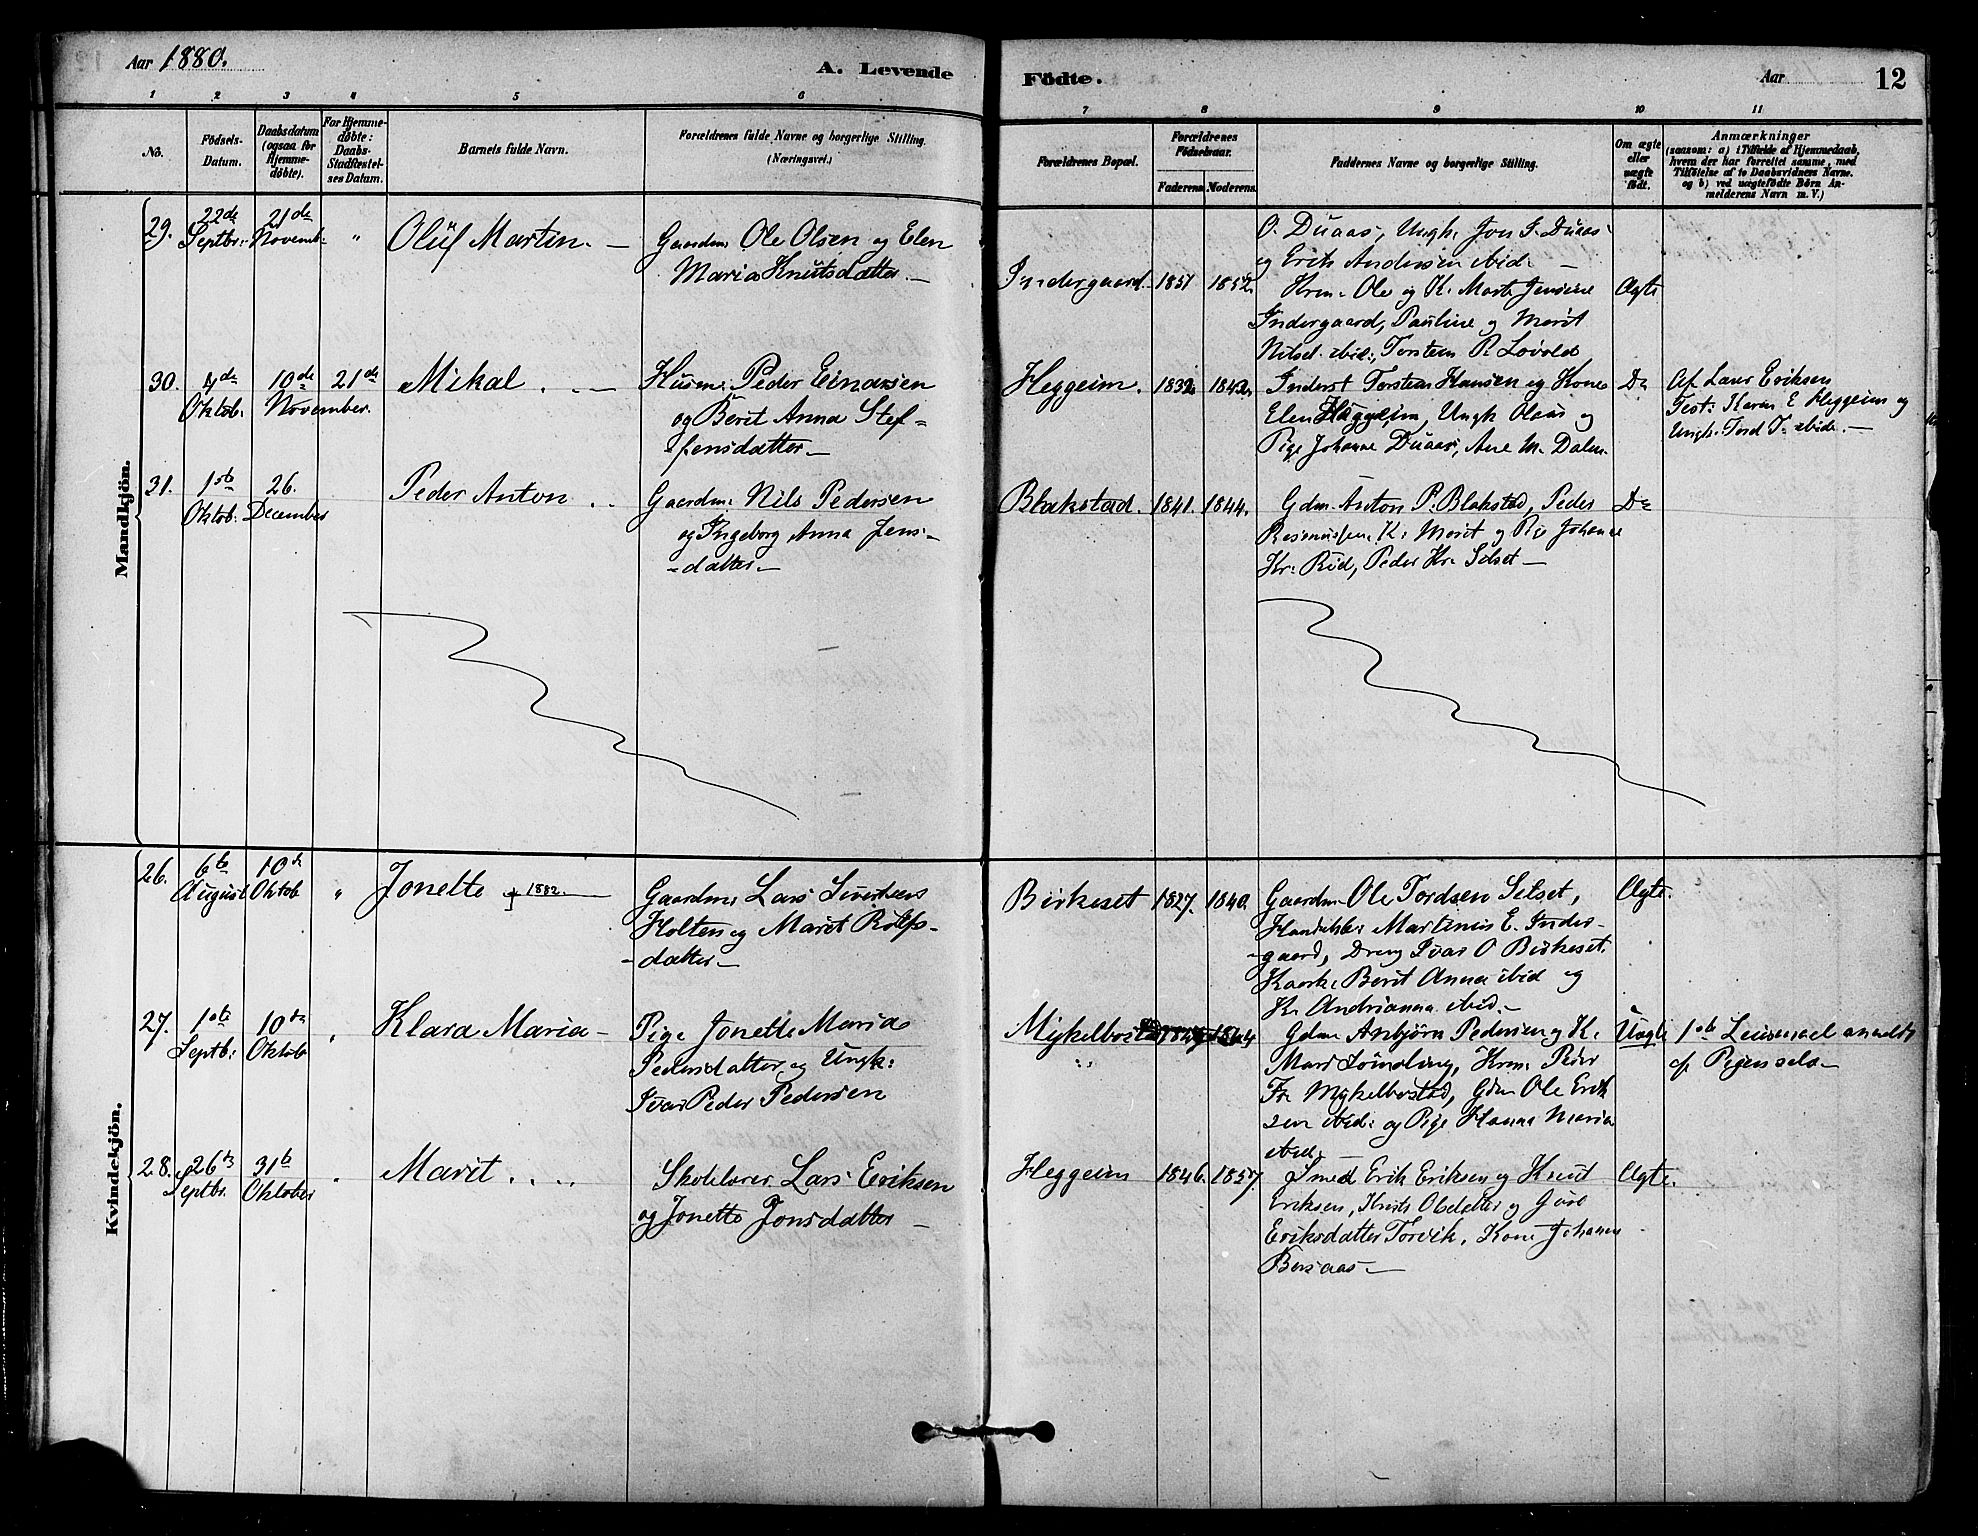 Aar 1880.
A. Levende
Födte.
Aar
12
1 2 3 4 5 6
7 8 9 10 11
No.
Födsels-
Datum.
Daabsdatum
(ogsaa for
Hjemme-
döbte).
For Hjemme-
döbte:
Daabs-
Stadfæstel-
ses Datum.
Barnets fulde Navn.
Forældrenes fulde Navne og borgerlige Stilling.
(Næringsvei.)
Forældrenes Bopæl.
Forældrenes
Födselsaar.
Faderens.
Moderens.
Faddernes Navne og borgerlige Stilling.
Om ægte
eller
uægte
födt.
Anmærkninger
(saasom: a) i Tilfælde af Hjemmedaab,
hvem der har forrettet samme, med
Tilföielse af to Daabsvidners Navne.
og b) ved uægtefödte Börn An-
melderens Navn m. V.)
Mandkjön.
29.
22de
Septbr:
21de
Novemb:
"
Oluf Martin. —
Gaardm: Ole Olsen og Elen
Maria Knutsdatter. —
Indergaard. 1851 1852.
O. Duaas, Ungk. Jon J. Duaas
og Erik Andersen ibid. —
Krm. Ole og K. Marte Jensine
Indergaard, Pauline og Marit
Nilsd. ibid:, Torstein P. Lovold
Ægte
30.
4de
Oktob.
10de
November.
21de
Mikal. . —
Husm: Peder Einarsen
og Berit Anna Stef-
fensdatter. —
Heggeim. 1832. 1842.
Inderst Torstein Hansen og Kone
Elen Heggeim, Ungk Olaus og
Pige Johanne Duaas, Ane M. Dalen.
Do
Af Lærer Eriksen
Test: Karen E Heggeim og
Ungk. Tord T. ibide. —
31.
1ste
Oktob:
26.
December
Peder Anton . .
Gaardm: Nils Pedersen
og Ingeborg Anna Jens-
-datter. —
Blakstad. 1841. 1844.
Gdm. Anton P. Blakstad, Peder
Rasmussen. K. Marit og Pig Johanne
Kr. Röd, Peder Kr. Selset —
Do
Kvindekjön.
26.
6te
August
10de
Oktob
"
Jonette † 1882. —
Gaardm: Lars Sivertsen
Holten og Marit Rolfs-
-datter. —
Birkeset 1827. 1840.
Gaardm. Ole Tordsen Selset,
Martinus E. Inder-
-gaard, Dreng Ivar O Birkeset.
Berit Anna ibid og
K. Andrianna ibid. —
Ægte.
27.
1ste
Septb:
10de
Oktob
"
Klara Maria —
Pige Jonette Maria
Pedersdatter og Ungk:
Ivar Peder Pedersen
Mykelbostad
Gdm Anbjörn Pedersen og K.
Mari Krm: Peder
Fr. Mykelbostad, Gdm Ole Erik
sen ibid: og Pige Hanna Maria
ibid. —
Uægte
1ste Leiermaal anmeldt
af Pigen selv —
28.
26de
Septbr.
31te
Oktober
"
Marit . . . .
Skolelærer Lars Eriksen
og Jonette Jonsdatter —
Heggeim 1846. 1857.
Smed Erik Eriksen og Knut
Eriksen, Olsdatter og
Eriksdatter Torvik, Kone Johanne
Bersaas. —
Ægte.